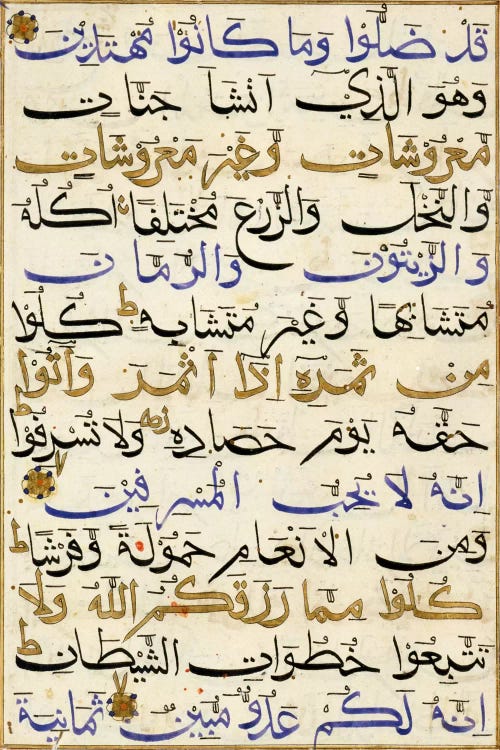 قد ضلوا وما كانوا مهتدين
وهو الذي أنشأ جنات
معروشات وغير معروشات
والنخل والزرع مختلفا أكله
والزيتون والرمان
متشابها وغير متشابه ط كلوا
من ثمره إذا أثمر وآتوا
حقه يوم حصاده ولا تسرفوا ط
إنه لا يحب المسرفين
ومن الأنعام حمولة وفرشا ط
كلوا مما رزقكم الله ولا
تتبعوا خطوات الشيطان ط
إنه لكم عدو مبين ثمانية